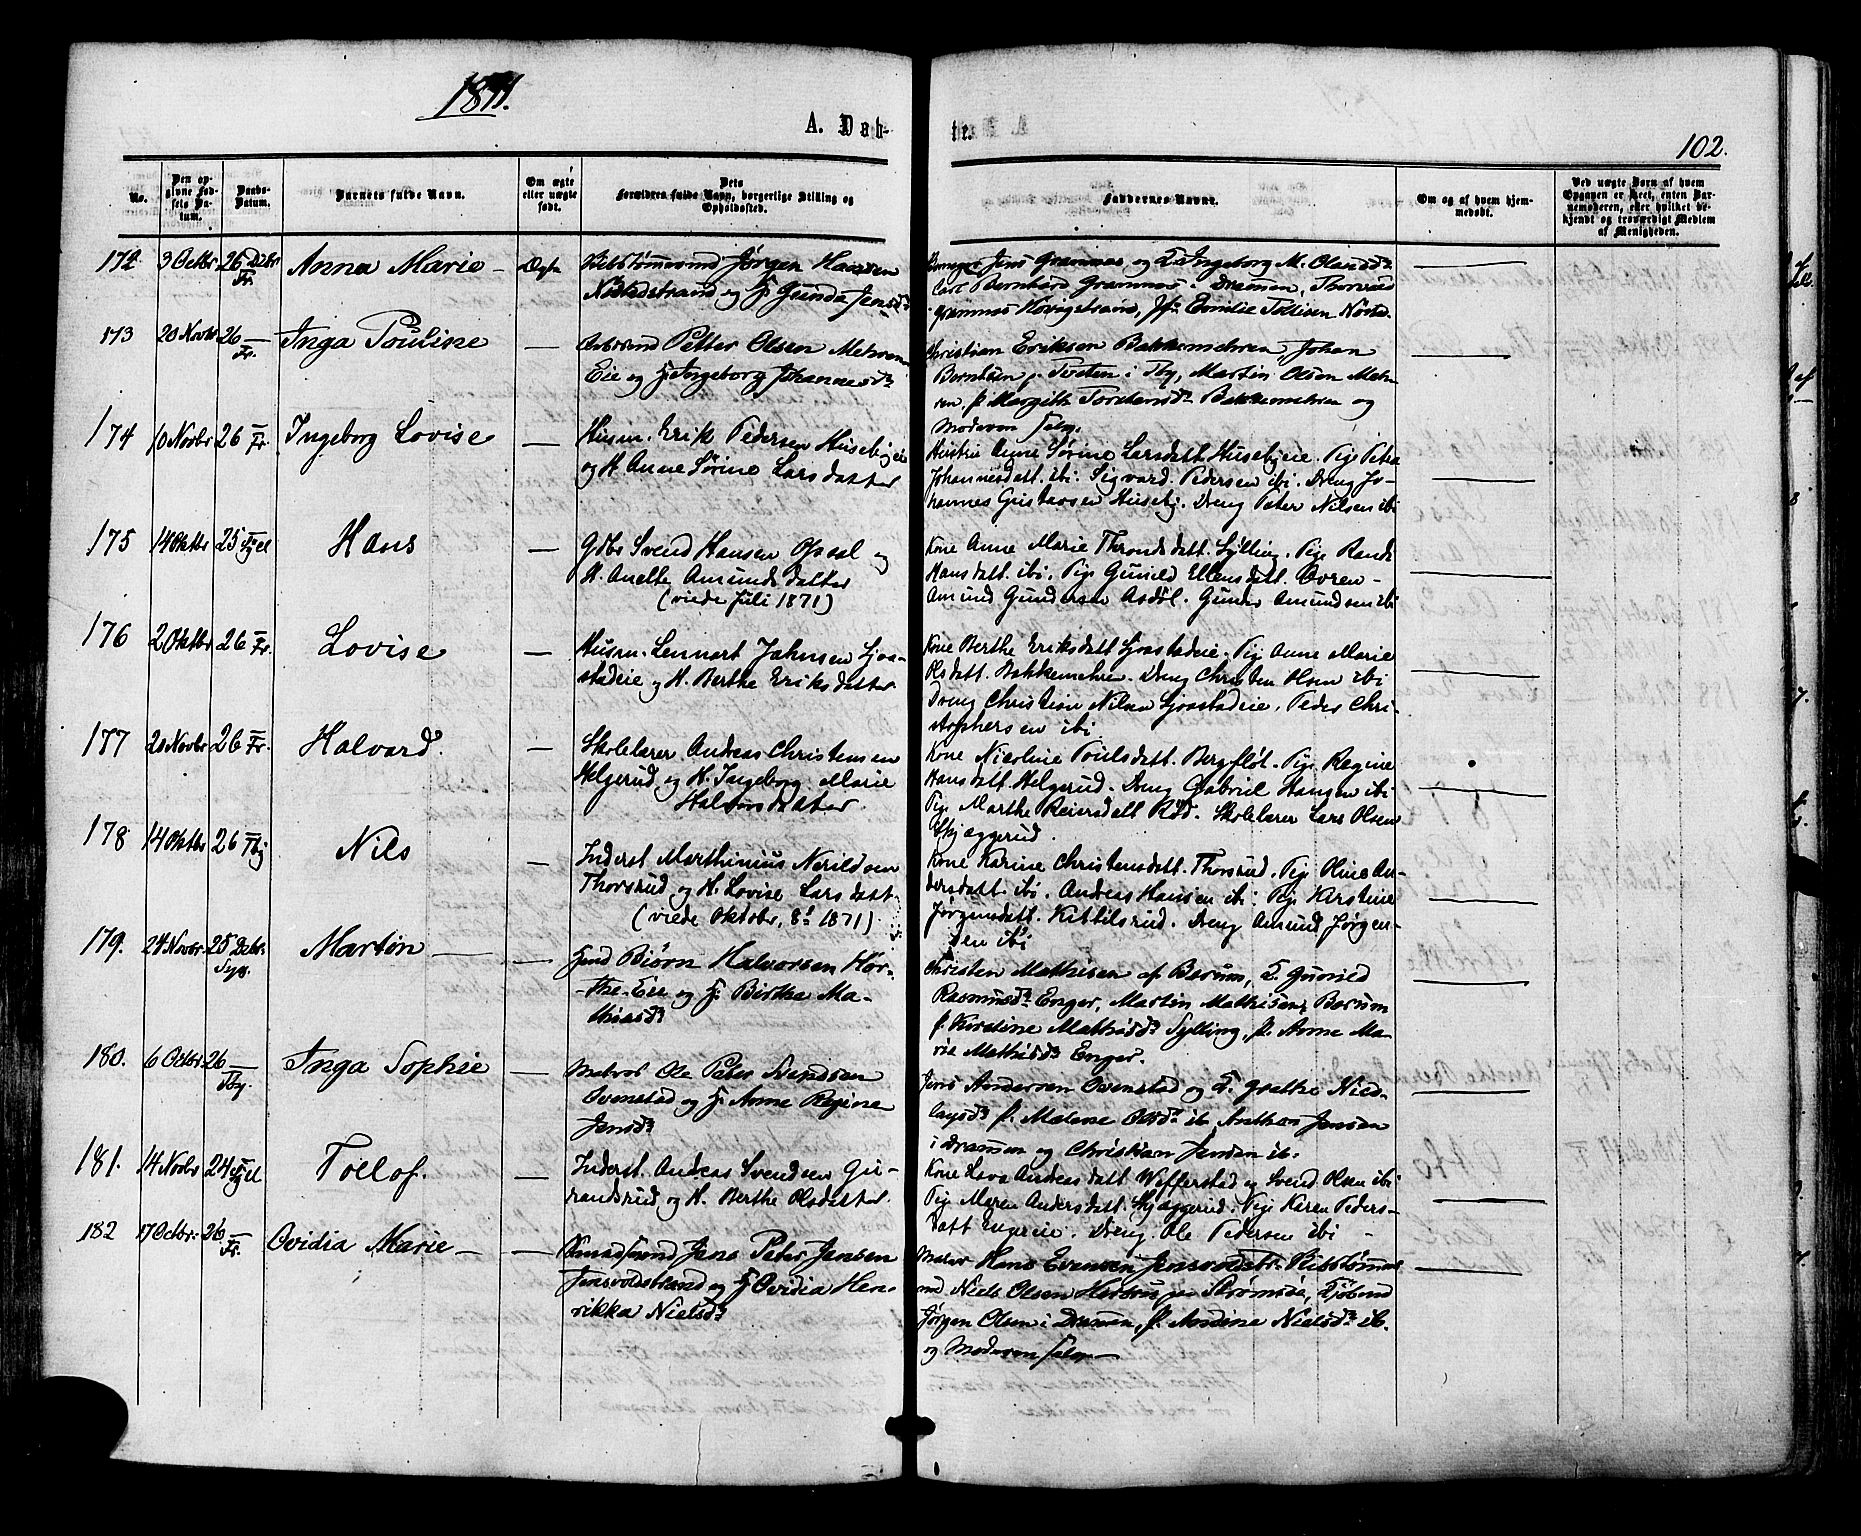 1871.
A. Døb-
te.
102.
No.
Den opgivne Fødsels Datum.
Daabs-Datum.
Barnets fulde Navn.
Om ægte eller uægte født.
Dets Forældres fulde Navn, borgerlige Stilling og Opholdssted.
Faddernes Navne.
Om og af hvem hjemmedøbt.
Ved uægte Børn af hvem Opgaven er skeet, enten Barnemoderen, eller hvilket bekjendt og troværdigt Medlem af Menigheden.
172 3 Octbr 26 Decbr Fr. Anna Marie – Ægte
Jørgen Hansen
Nøstedstrand og H. Gunda Jensd.
Jens Gramnæs og H. Ingeborg M. Olsensd.
Carl Bernhard Gramnæs i Dramen, Thorvald
Gramnæs Emilie Tollisen Nøste
173 20 Novbr 26 – Fr. Inga Pouline –
Arbmd Petter Olsen Mehren
Eie og H. Ingeborg Johannesd.
Christian Eriksen Bakkemehren, Johan
Berntsen p. Tveten i Tby, Martin Olsen Meh-
ren. p. Margith Torstensd. Bakkemehren og
Moderen selv.
174 10 Novbr 26 – Fr. Ingeborg Lovise –
Husm. Erik Pedersen Husebyeie
og H. Anne Sørine Larsdatter
Hustru Anne Sørine Larsdatt. Husebyeie. Pige Petra
Johannesdatt. ibi. Sigvard Pedersen ibi. Dreng Jo-
hannes Gustavsen Huseby. Dreng Peter Nilsen ibi
175 14 Oktbr 25 – Sjel Hans –
Gdbr Svend Hansen Opsal og
H. Anette Amundsdatter
(viede Juli 1871)
Kone Anne Marie Throndsdatt. Sylling. Pige Randi
Hansdatt. ibi. Pige Gunild Ellensdatt. Overn –
Amund Gundersen Asdøl. Gunder Amundsen ibi
176 2 Oktbr 26 – Fr. Lovise –
Husm. Lennart Jahnsen Ljøs-
stadeie og H. Berthe Eriksdatter
Kone Berthe Eriksdatt. Ljøsstadeie. Pige Anne Marie
Olsdatt. Bakkemehren. Dreng Christen Olsen ibi
Dreng Christian Nilsen Ljøsstadeie. Peder Chri-
stophersen ibi
177 20 Novbr 26 – Fr. Halvard. –
Skolelærer Andreas Christensen
Helgerud og H. Ingeborg Marie
Halvorsdatter.
Kone Nicoline Poulsdatt. Bergfløt. Pige Regine
Hansdatt. Helgerud. Dreng Gabriel Hansen ibi
Pige Marthe Reiersdatt. Rød. Skolelærer Lars Olsen
Skjæggerud.
178 14 Oktbr 26 – Tby Nils –
Inderst Marthinius Nerildsen
Thorsrud og H. Lovise Larsdatt.
(viede Oktober 8de 1871).
Kone Karine Christensdatt. Thorsrud. Pige Oline An-
dersdatt. ibi. Andreas Hansen ibi. Pige Kirstine
Jørgensdatt. Kittilsrud. Dreng Amund Jørgen-
sen ibi
179. 24 Novbr 25 Decbr Syl. Martin – –
Biørn Halvorsen Hør-
the-Eie og H. Birtha Ma-
thiasd.
Christen Mathisen af Berum, H. Gunild
Rasmusd. Enger, Martin Mathisen, Bærum
p. Kirstine Mathisd. Sylling, p. Anne Ma-
rie Mathisd. Enger.
180. 6 Octbr 26 – Tby. Inga Sophie –
Matros Ole Peter Svendsen
Ovenstad og H. Anne Regine
Jensd.
Jens Andersen Ovenstad og H. Grethe Nico-
laysd. p. Malene Olsd. ib. Anthon Jensen
i Dramen og Christian Jensen ib.
181. 14 Novbr 24 – Sjel Tollof. –
Inderst. Andreas Svendsen Gu-
randsrud og H. Berthe Olsdatter
Kone Eva Andreasdatt. Wefferstad og Svend Olsen ibi
Pige Maren Andersdatt. Skjæggerud. Pige Karen Peders-
datt. Engereie. Dreng Ole Pedersen ibi –
182 17 Octbr 26 – Fr. Ovidia Marie – –
Jens Peter Jensen
Jensvoldstrand og H. Ovidia Hen-
rikka Nielsd.
Hans Evensen Jensvoldstr.
Niels Olsen Strømsø,
Jørgen Olsen i Dramen, p. Andine Nielsd. ib.
og Moderen selv –